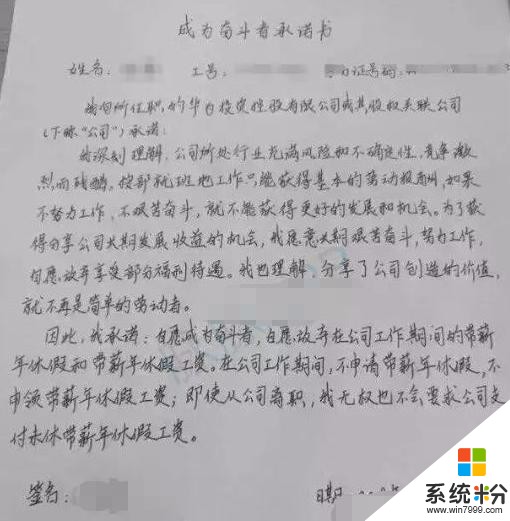 成为奋斗者承诺书
姓名: 工号: 证号码:
我向所任职的华为投资控股有限公司或其股权关联公司
(下称"公司")承诺:
我深刻理解,公司所处行业充满风险和不确定性,竞争激
烈而残酷,按部就班地工作只能获得基本的劳动报酬,如果
不努力工作,不艰苦奋斗,就不能获得更好的发展和机会。为了获
得分享公司长期发展收益的机会,我愿意长期艰苦奋斗,努力工作,
自愿放弃享受部分福利待遇。我也理解,分享了公司创造的价值,
就不再是简单的劳动者。
因此,我承诺:自愿成为奋斗者,自愿放弃在公司工作期间的带薪
年休假和带薪年休假工资。在公司工作期间,不申请带薪年休假,不
申领带薪年休假工资;即使从公司离职,我无权也不会要求公司支
付未休带薪年休假工资。
签名: 日期
系统粉
www.win7999.com